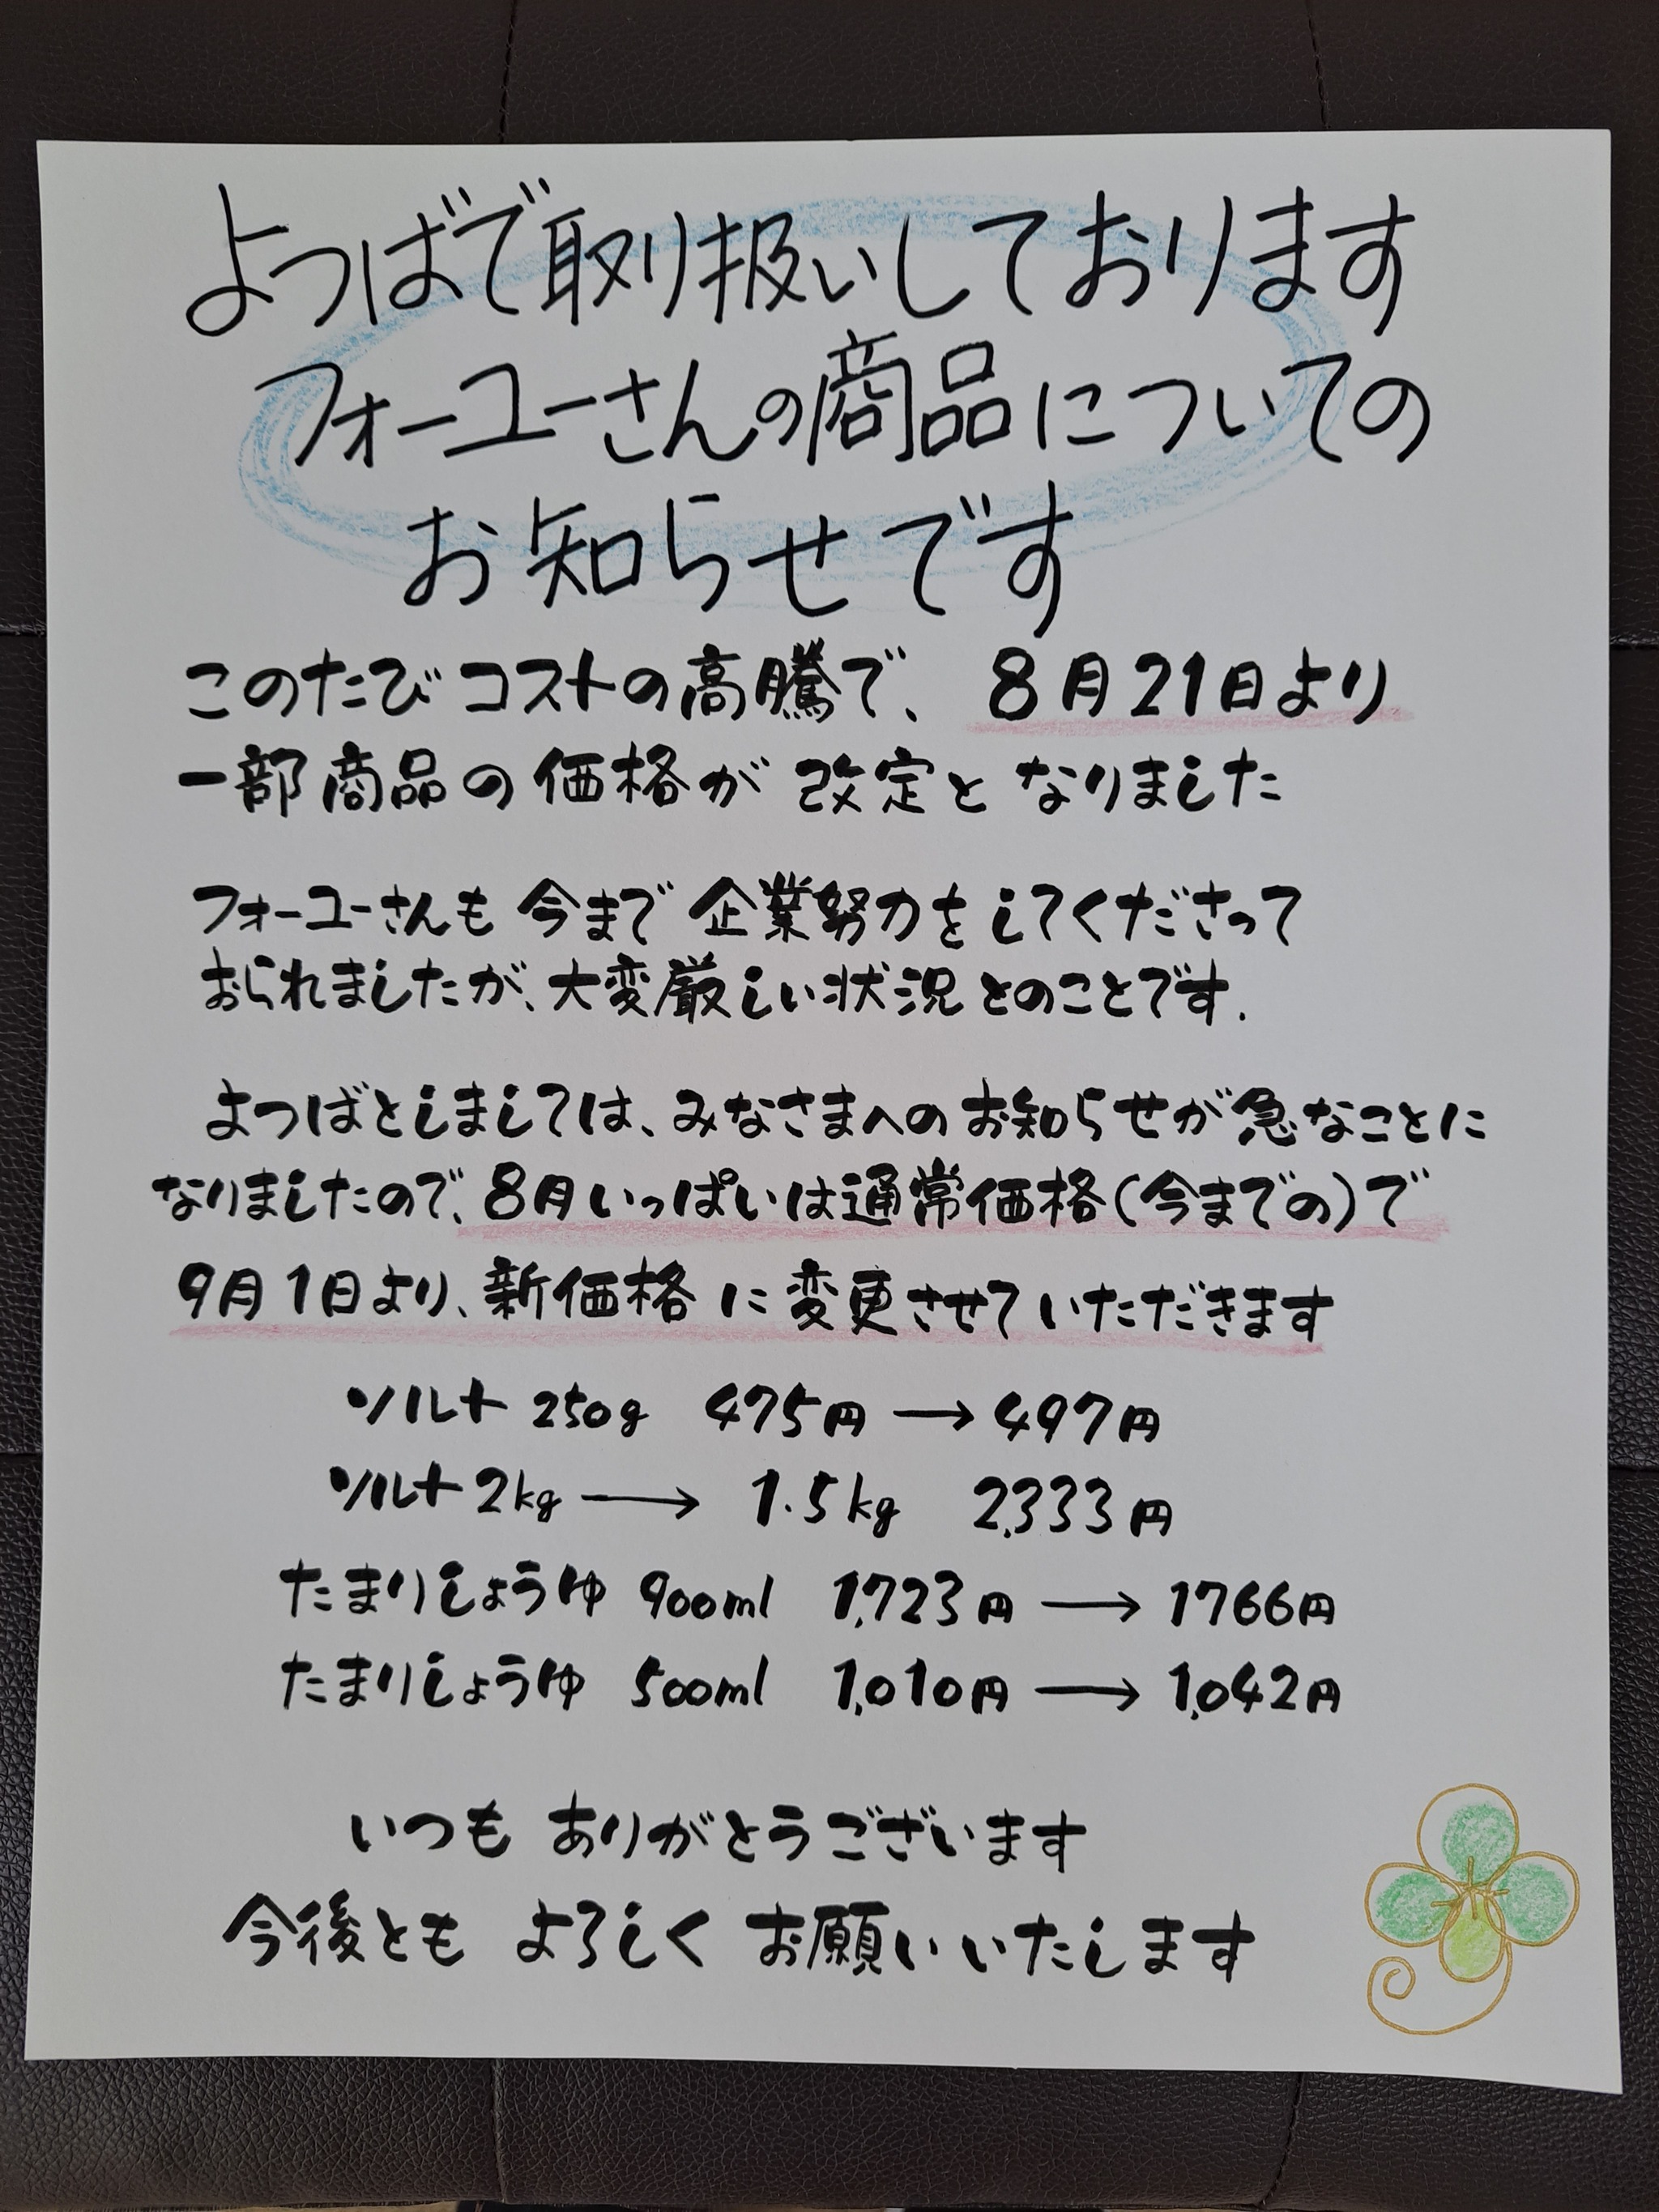 よつばで取り扱いしております
フォーユーさんの商品についての
お知らせです
このたびコストの高騰で、8月21日より
一部商品の価格が改定となりました
フォーユーさんも今まで企業努力をしてくださって
おられましたが、大変厳しい状況とのことです.
よつばとしましては、みなさまへのお知らせが急なことに
なりましたので、8月いっぱいは通常価格(今までの)で
9月1日より、新価格に変更させていただきます
ソルト 250g 475円 → 497円
ソルト 2kg → 1.5kg 2,333円
たまりしょうゆ 900ml 1,723円 → 1766円
たまりしょうゆ 500ml 1,010円 → 1,042円
いつも ありがとうございます
今後とも よろしく お願いいたします